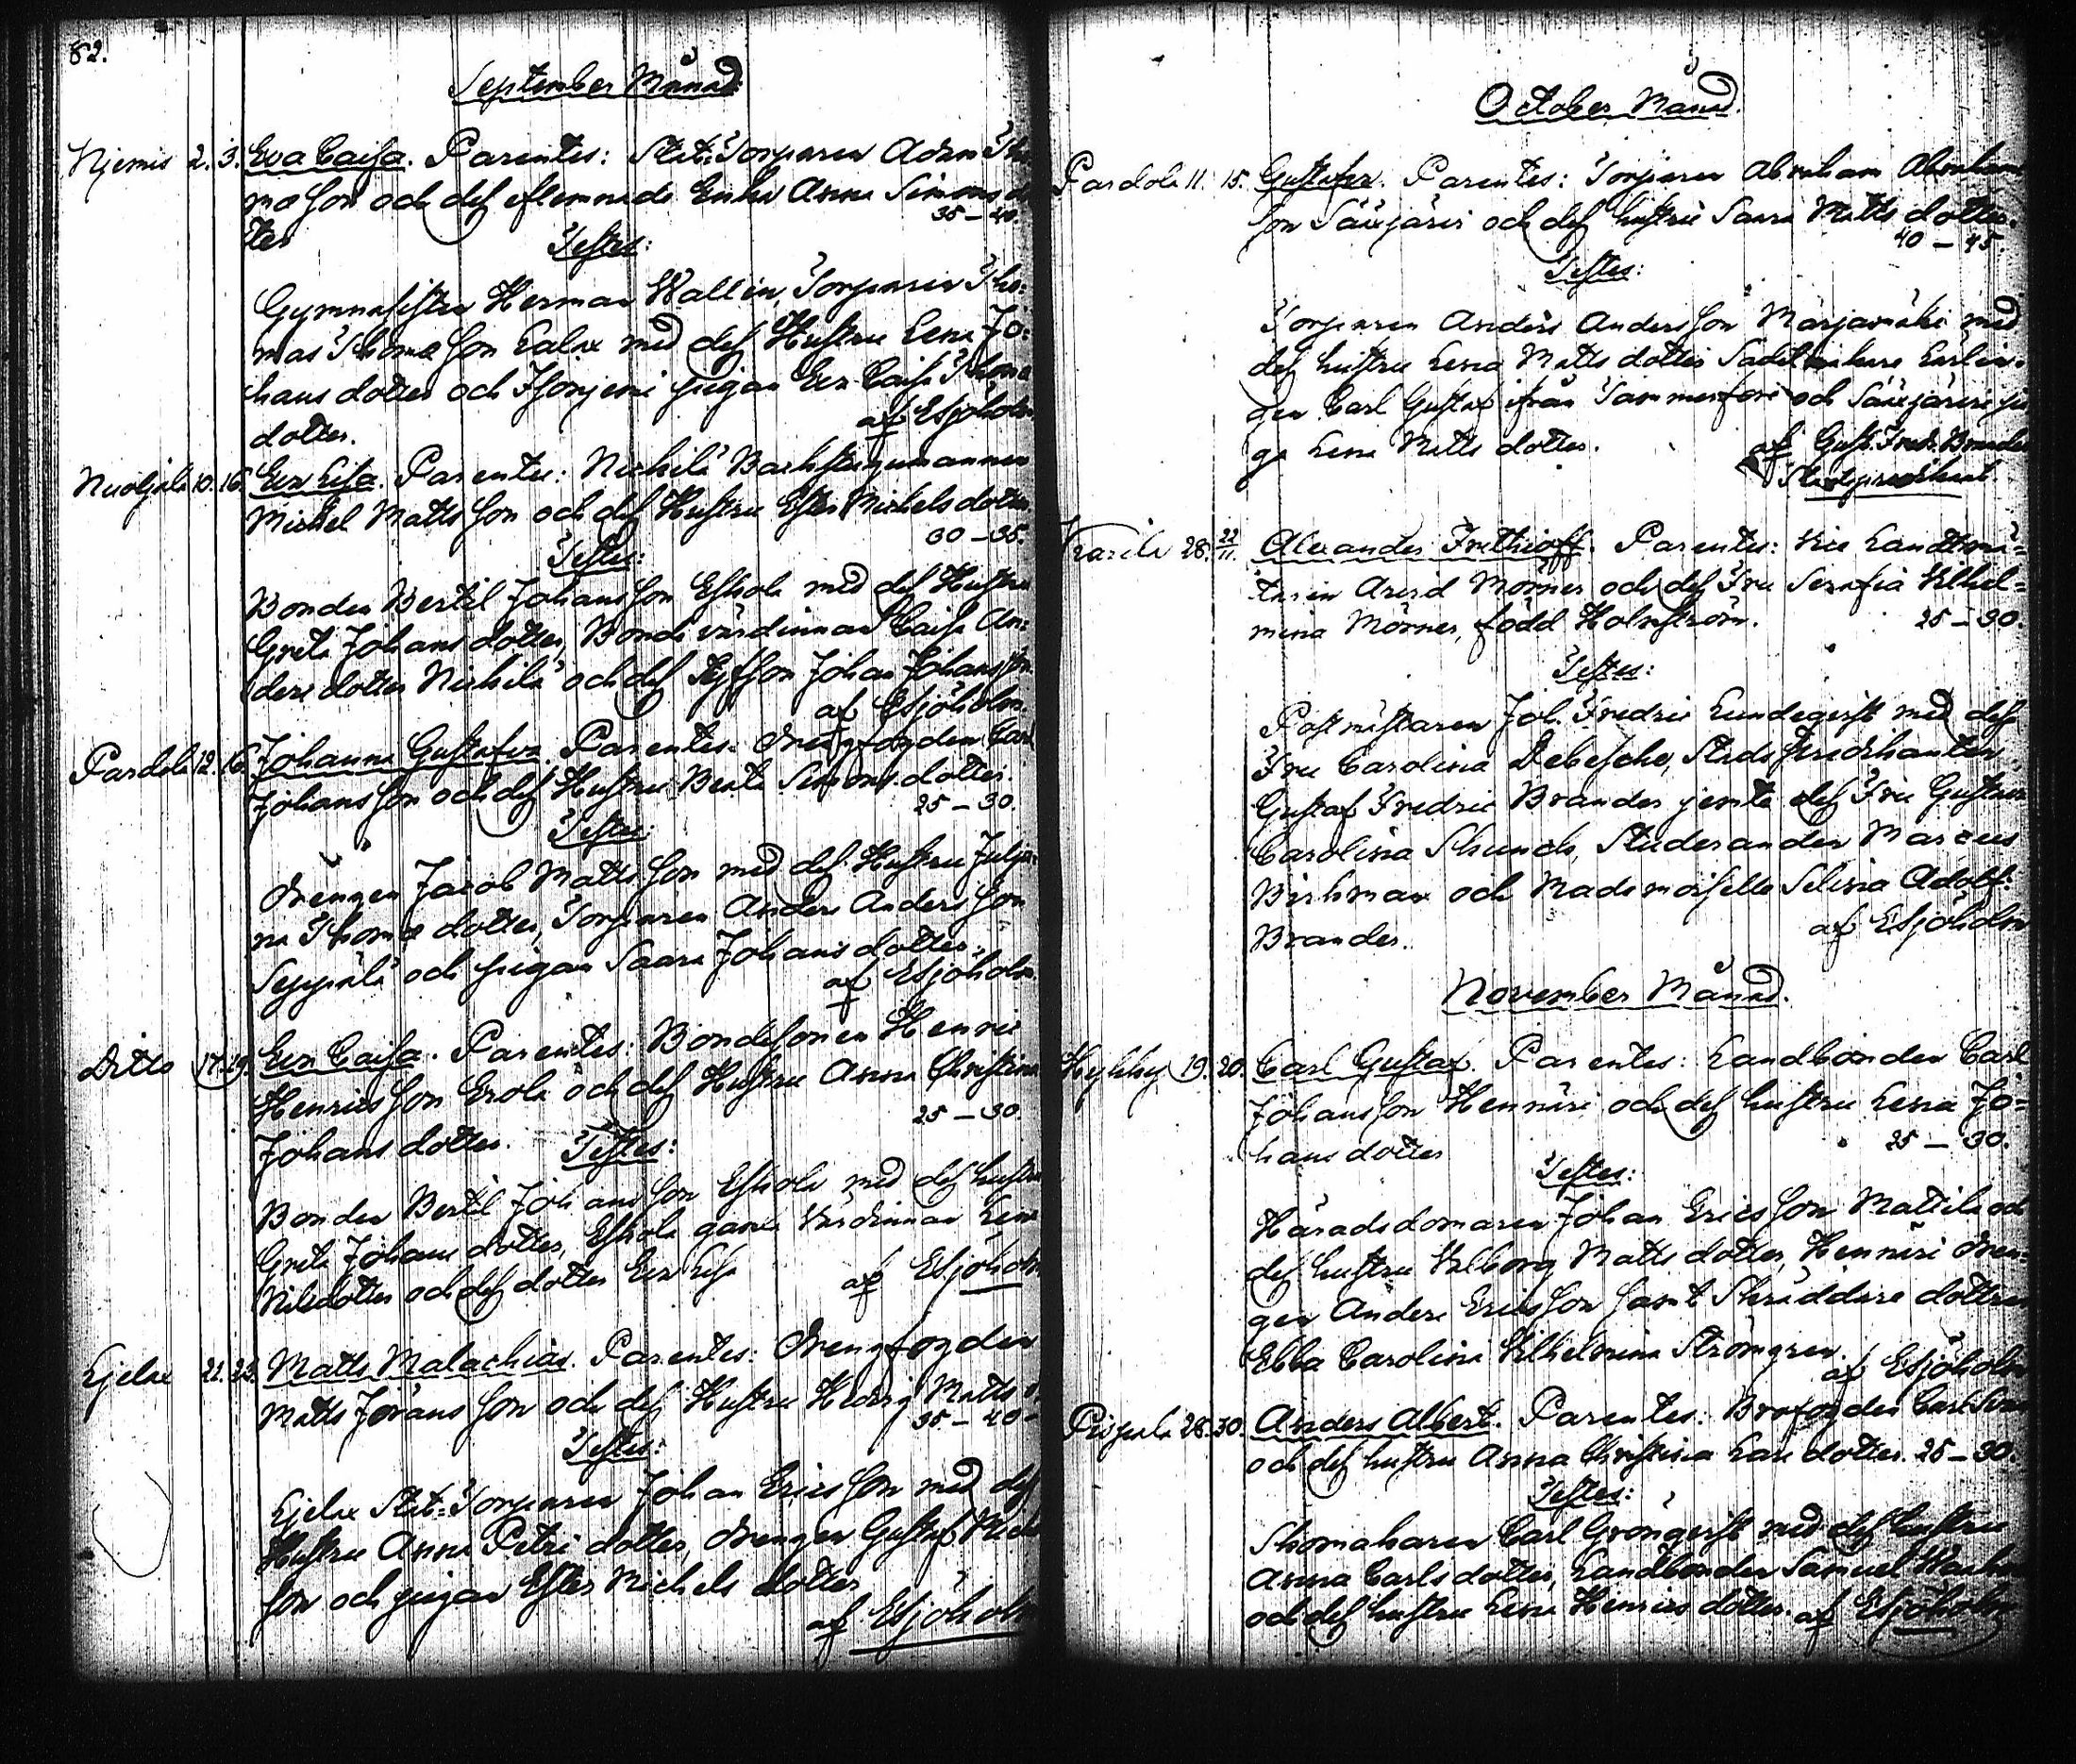 82.
September Månad
Njemis 2. 3. Eva Caisa. Parentes: Stat-Torparen Adam Tho
mæ Son och dess efterlemnade Enka Anna Simons dot
ter 35 – 40.
Testes:
Gymnasisten Herman Wallin, Torparen Tho:
mas Thomæ Son Lalax med dess Hustru Lena Jo:
hans dotter och pigan Eva Caisa Thomæ
dotter. af ESjöholm
10. 16. Eva Lisa. Parentes: Nickilä Backstugumannen
Michel Matts Son och dess Hustru Ester Michels dotter
30 – 35.
Testes:
Bonden Bertil Johans Son Eskola med dess Hustru
Greta Johans dotter, Bonde värdinnan Caisa An:
ders dotter Nickilä och dess Johan Johans Son
af ESjöholm.
Pardola 12. 16. Johanna Gustafva. Parentes: Drengfogden Carl
Johans Son och dess Hustru Beata Simons dotter.
25 – 30.
Testes:
Drengen Jacob Matts Son med dess Hustru Julja:
na Thomæ dotter, Torparen Anders Anders Son
Seppälä och pigan Saara Johans dotter.
af ESjöholm.
Ditto 17. 19. Eva Caisa. Parentes: Bondesonen Henric
Henrics Son Erola och dess Hustru Anna Christina
25 – 30.
Johans dotter. Testes:
Bonden Bertil Johans Son Eskola med dess hustru
Greta Johans dotter, Eskola gamla Värdinnan Lena
Nilsdotter och dess dotter Eva Lisa
af ESjöholm
Ljelax 22. 23. Matts Malachias. Parentes: Drengfogden
Matts Jörans Son och dess Hustru Hedvig Matts d.
35 – 40 –
Testes:
Ljelax Stat-Torparen Johan Erics Son med dess
Hustru Anna Petri dotter, Drengen Gustaf
Son och pigan Ester Michels dotter
af ESjöholm
October Månad.
Pardola 11. 15. Gustafva. Parentes: Torparen Abraham Abrahams
Son Sääxjärvi och dess hustru Saara Matts dotter.
40 – 45.
Testes:
Torparen Anders Anders Son Marjamäki med
dess hustru Lena Matts dotter Sadelmakare Lärlin-
gen Carl Gustaf ifrån Tammerfors och Sääxjärvi pi
ga Lena Matts dotter. af Gust. Fred. Brander
28. 22/11. Alexander Frithioff. Parentes: Vice Landtmä-
taren Arvid Mörner och dess Fru Serafia Vilhel-
mina Mörner, född Holmström. 25 – 30.
Testes:
Postmästaren Joh. Fredric Lundeqvist med dess
Fru Carolina Debesche, Stads
Gustaf Fredric Brander jemte dess Fru Gustava
Carolina Schunck, Studeranden Marcus
Birkman och Mademoiselle Selina Adolf:
Brander. af ESjöholm
November Månad.
Hykky 19. 20. Carl Gustaf. Parentes: Landbonden Carl
Johans Son Hennäri och dess hustru Lena Jo-
hans dotter 25 – 30.
Testes:
Häradsdomaren Johan Erics Son Mattila och
dess hustru Valborg Matts dotter, Hennäri dren-
gen Anders Erics Son samt Skräddare dottren
Ebba Carolina Vilhelmina Strömgren
af ESjöholm
28. 30. Anders Albert. Parentes: Brofogden Carl
och dess hustru Anna Christina Lars dotter. 25 – 30.
Testes:
Skomakaren Carl Grönqvist med dess hustru
Anna Carls dotter, Landbonden Samuel
och dess hustru Lena Henrics dotter. af ESjöholm